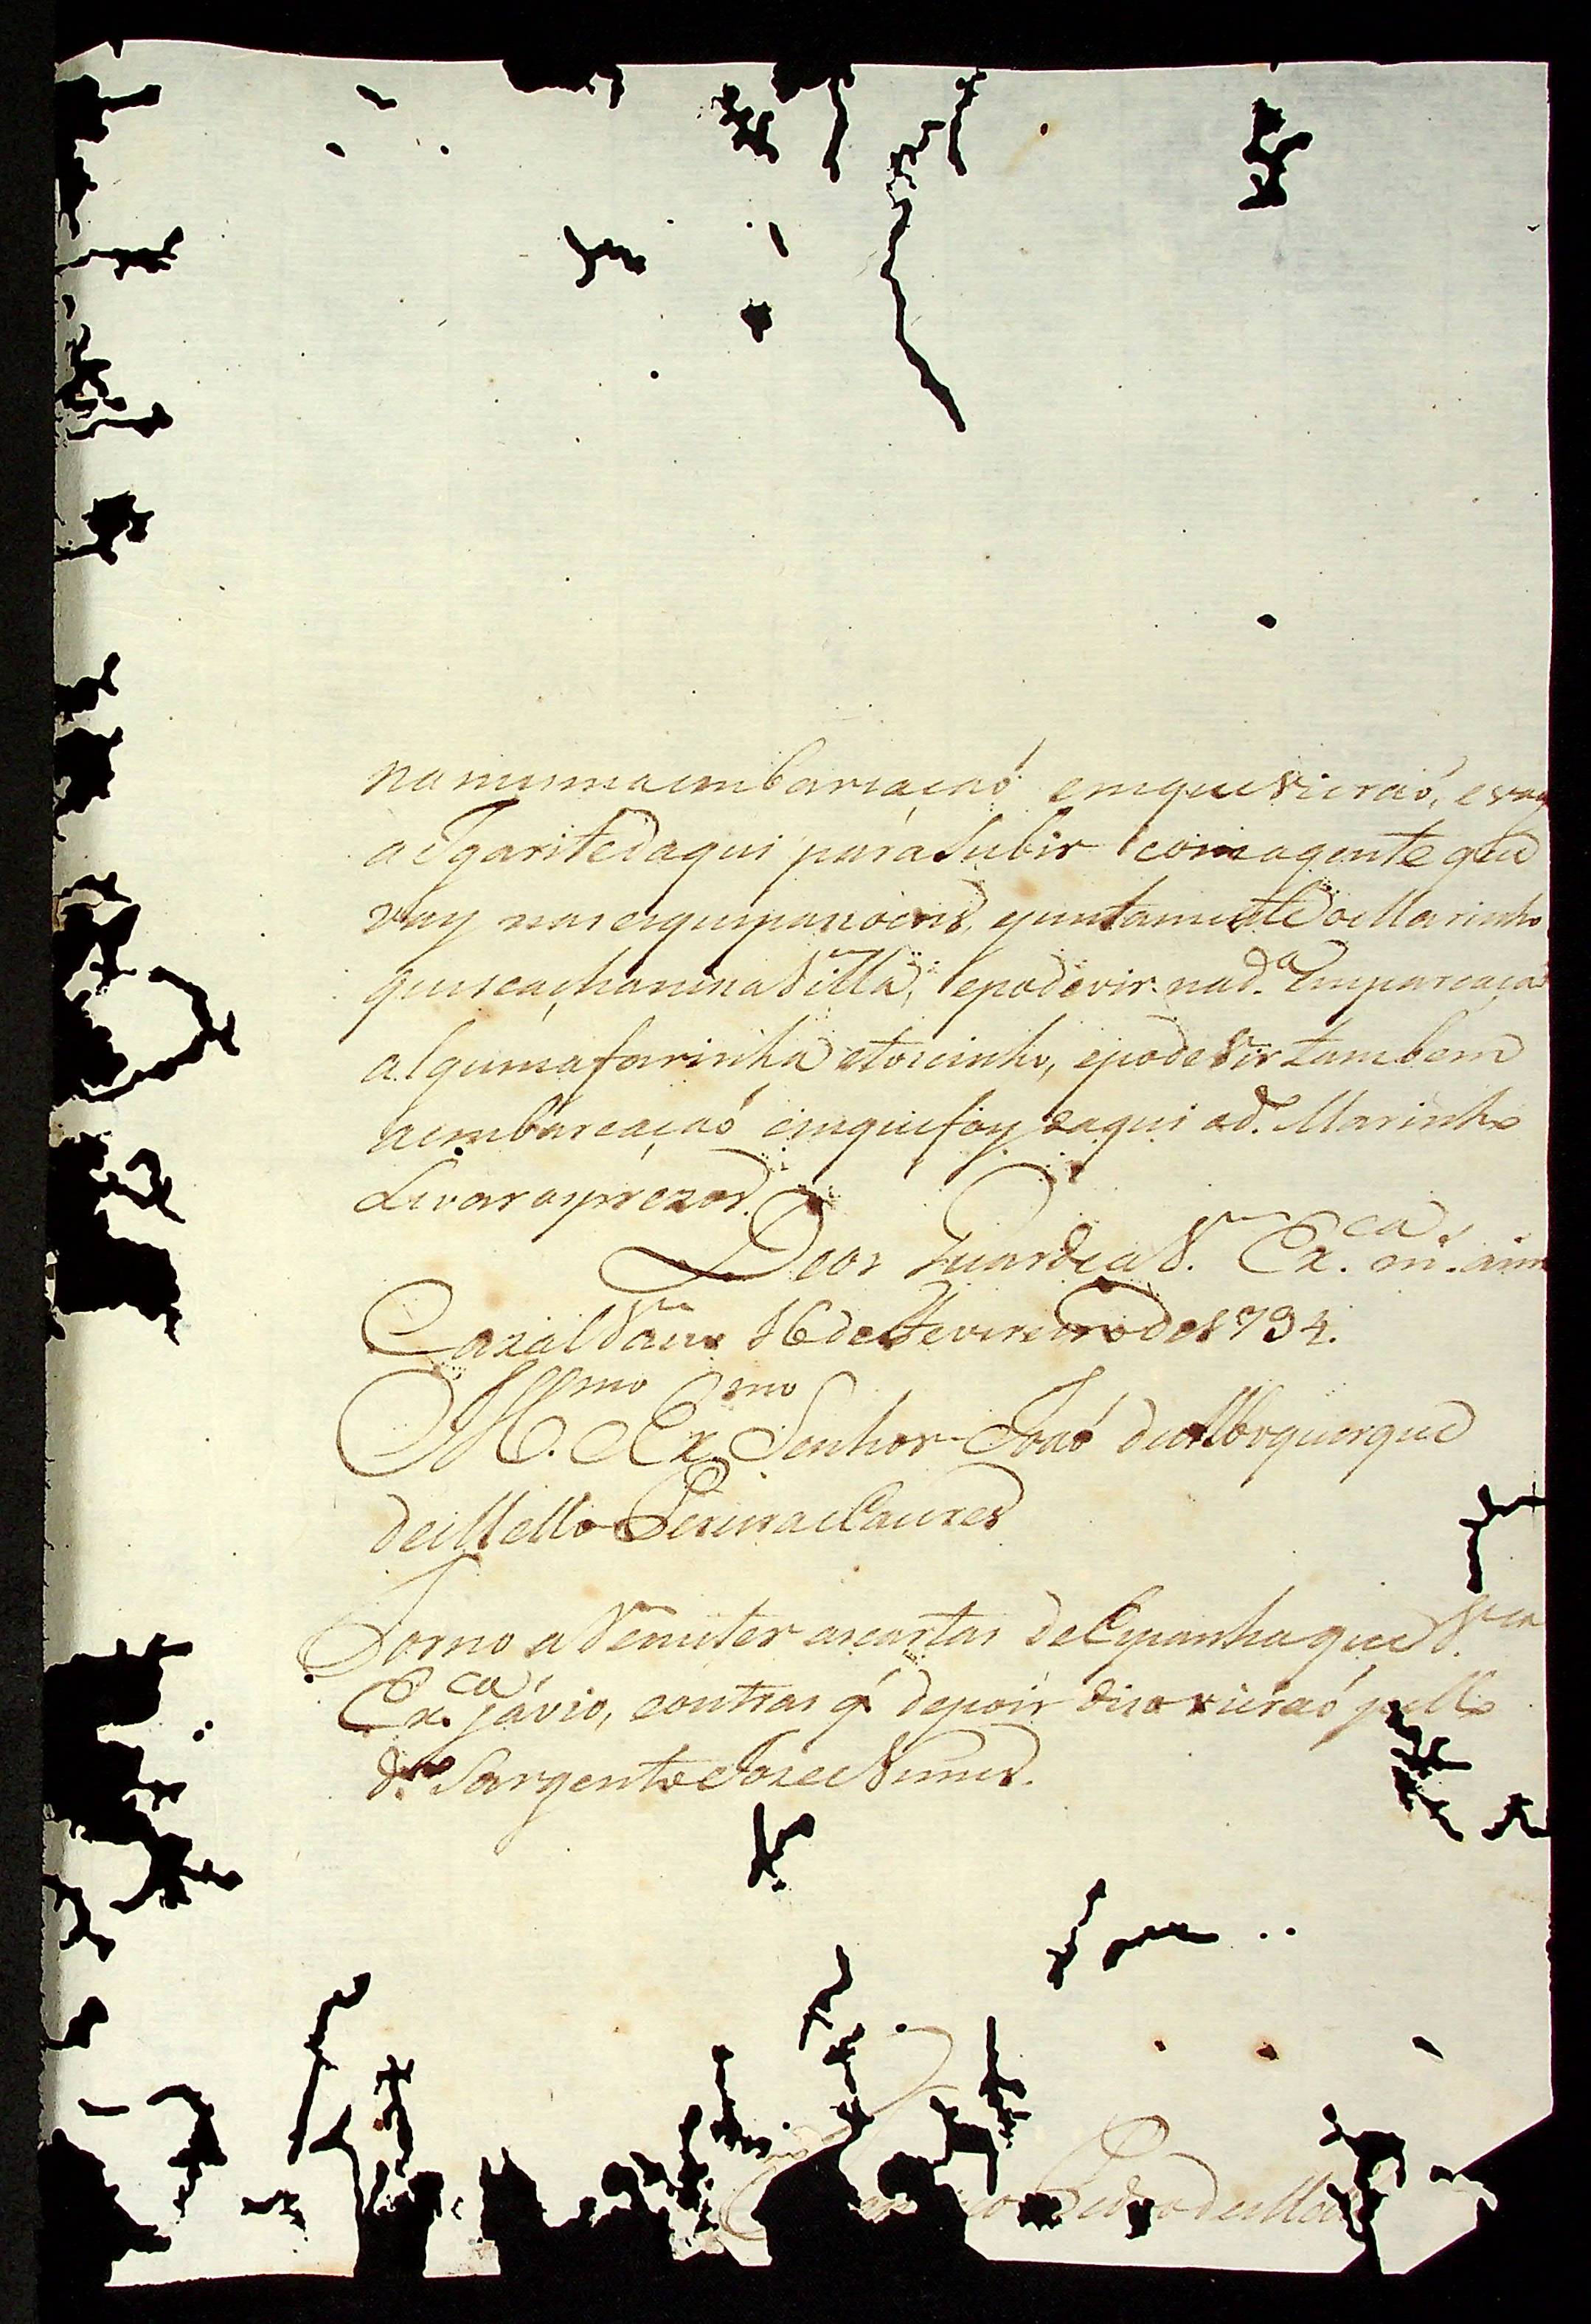 na mesma embarcaçaó em que vieraó, e vay
a Igarite daqui para Subir com a gente que
vay nas esquipaçoens, e juntamente o Marinho
que se acha nesa Villa, e pode vir na d.ª Emparcaçaó
alguma farinha e toicinho, e pode vir tambem
a embarcaçaó em que foy daqui o d. Marinho
Levar os prezos.
Deos Guarde a V. Ex.ca m.s ann
Cazal Vasco 16 de Fevereiro de 1794.
Ill.mo e Ex.mo Senhor Joaó de Albquerque
de Mello Pereira e Caceres
Torno a Remeter as cartas de Espanha que V.
Ex.ca já vio, e outras q. depois diso vieraó pello
d.to Sargento Joze Nunes.
Pedro de Mello